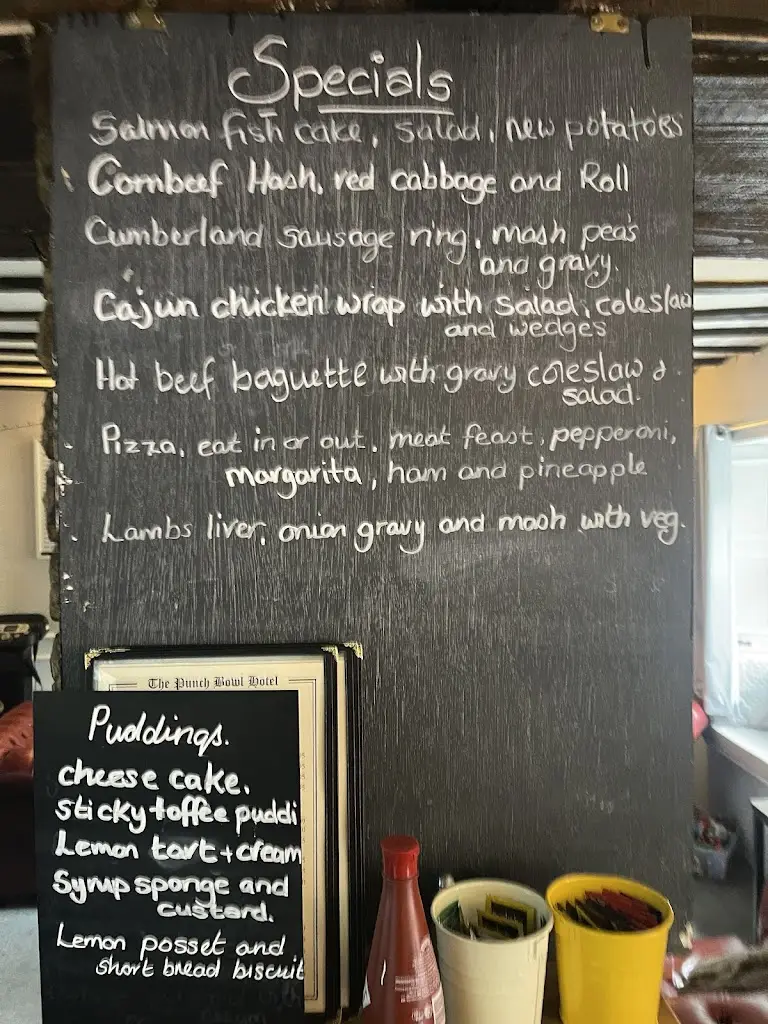 Specials
Salmon fish cake, salad, new potatoes
Cornbeef Hash, red cabbage and Roll
Cumberland sausage ring, mash peas
and gravy.
Cajun chicken wrap with salad, coleslaw
and wedges
Hot beef baguette with gravy coleslaw &
salad.
Pizza, eat in or out, meat feast, pepperoni,
margarita, ham and pineapple
Lambs liver, onion gravy and mash with veg.
The Punch Bowl Hotel
Puddings.
cheese cake.
sticky toffee puddi
Lemon tart + cream
Syrup sponge and
custard.
Lemon posset and
short bread biscuit